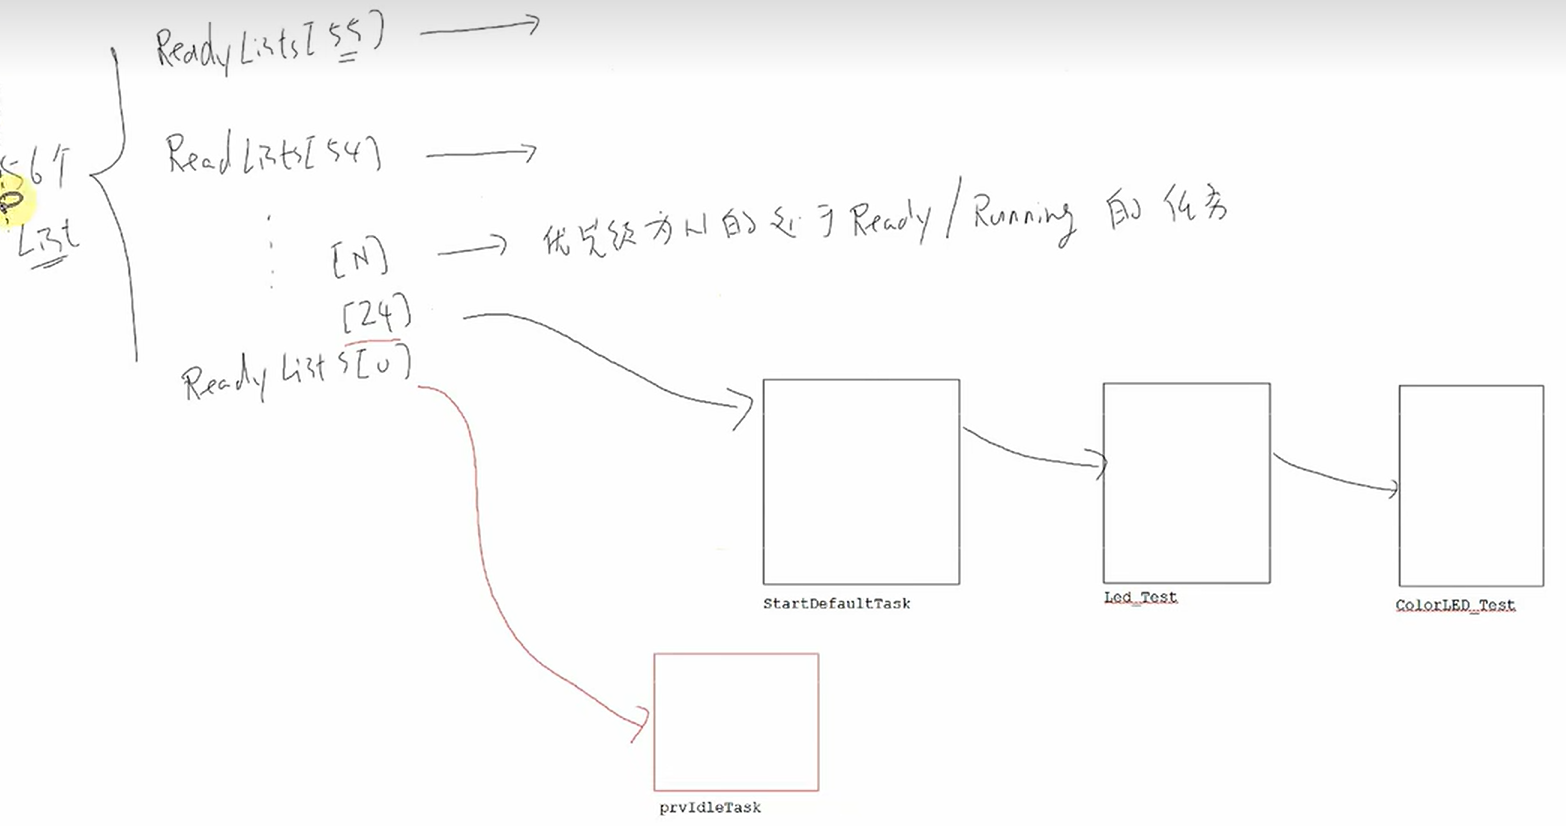 ReadyLists[55]
ReadLists[54]
56个
List
[N] 优先级为N的处于Ready/Running的任务
[24]
ReadyLists[0]
StartDefaultTask
Led_Test
ColorLED_Test
prvIdleTask